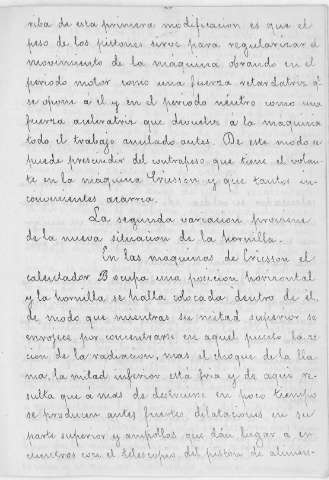 riba de esta primera modificacion es que el
peso de los pistones sirve para regularizar el
movimiento de la maquina obrando en el
periodo motor como una fuerza retardatriz qe
se opone á el y en el periodo néutro como una
fuerza aceleratriz que devuelve á la maquina
todo el trabajo anulado antes. De este modo se
puede prescindir del contrapeso que tiene el volan-
te en la maquina Ericsson y que tantos in-
convenientes acarrea.
La segunda variacion proviene
de la nueva situacion de la hornilla.
En las maquinas de Ericsson el
calentador B ocupa una posicion horizontal
y la hornilla se halla colocada dentro de él,
de modo que mientras su mitad superior se
enrojece por concentrarse en aquel punto la ac-
cion de la radiacion, mas el choque de la lla-
ma, la mitad inferior está fria y de aqui re-
sulta que á mas de destruirse en poco tiempo
se producen antes fuertes dilataciones en su
parte superior y ampollas que dán lugar á en-
cuentros con el telescopio del piston de alimen-